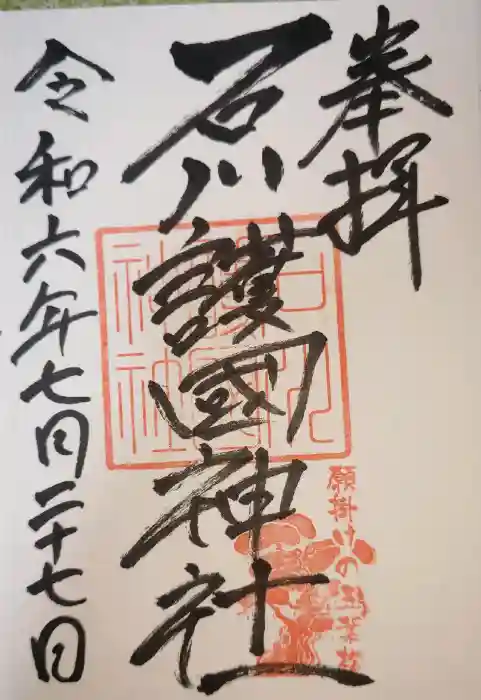 奉拝
石川護國神社
令和六年七月二十七日
石川護國神社
願掛けの五葉松